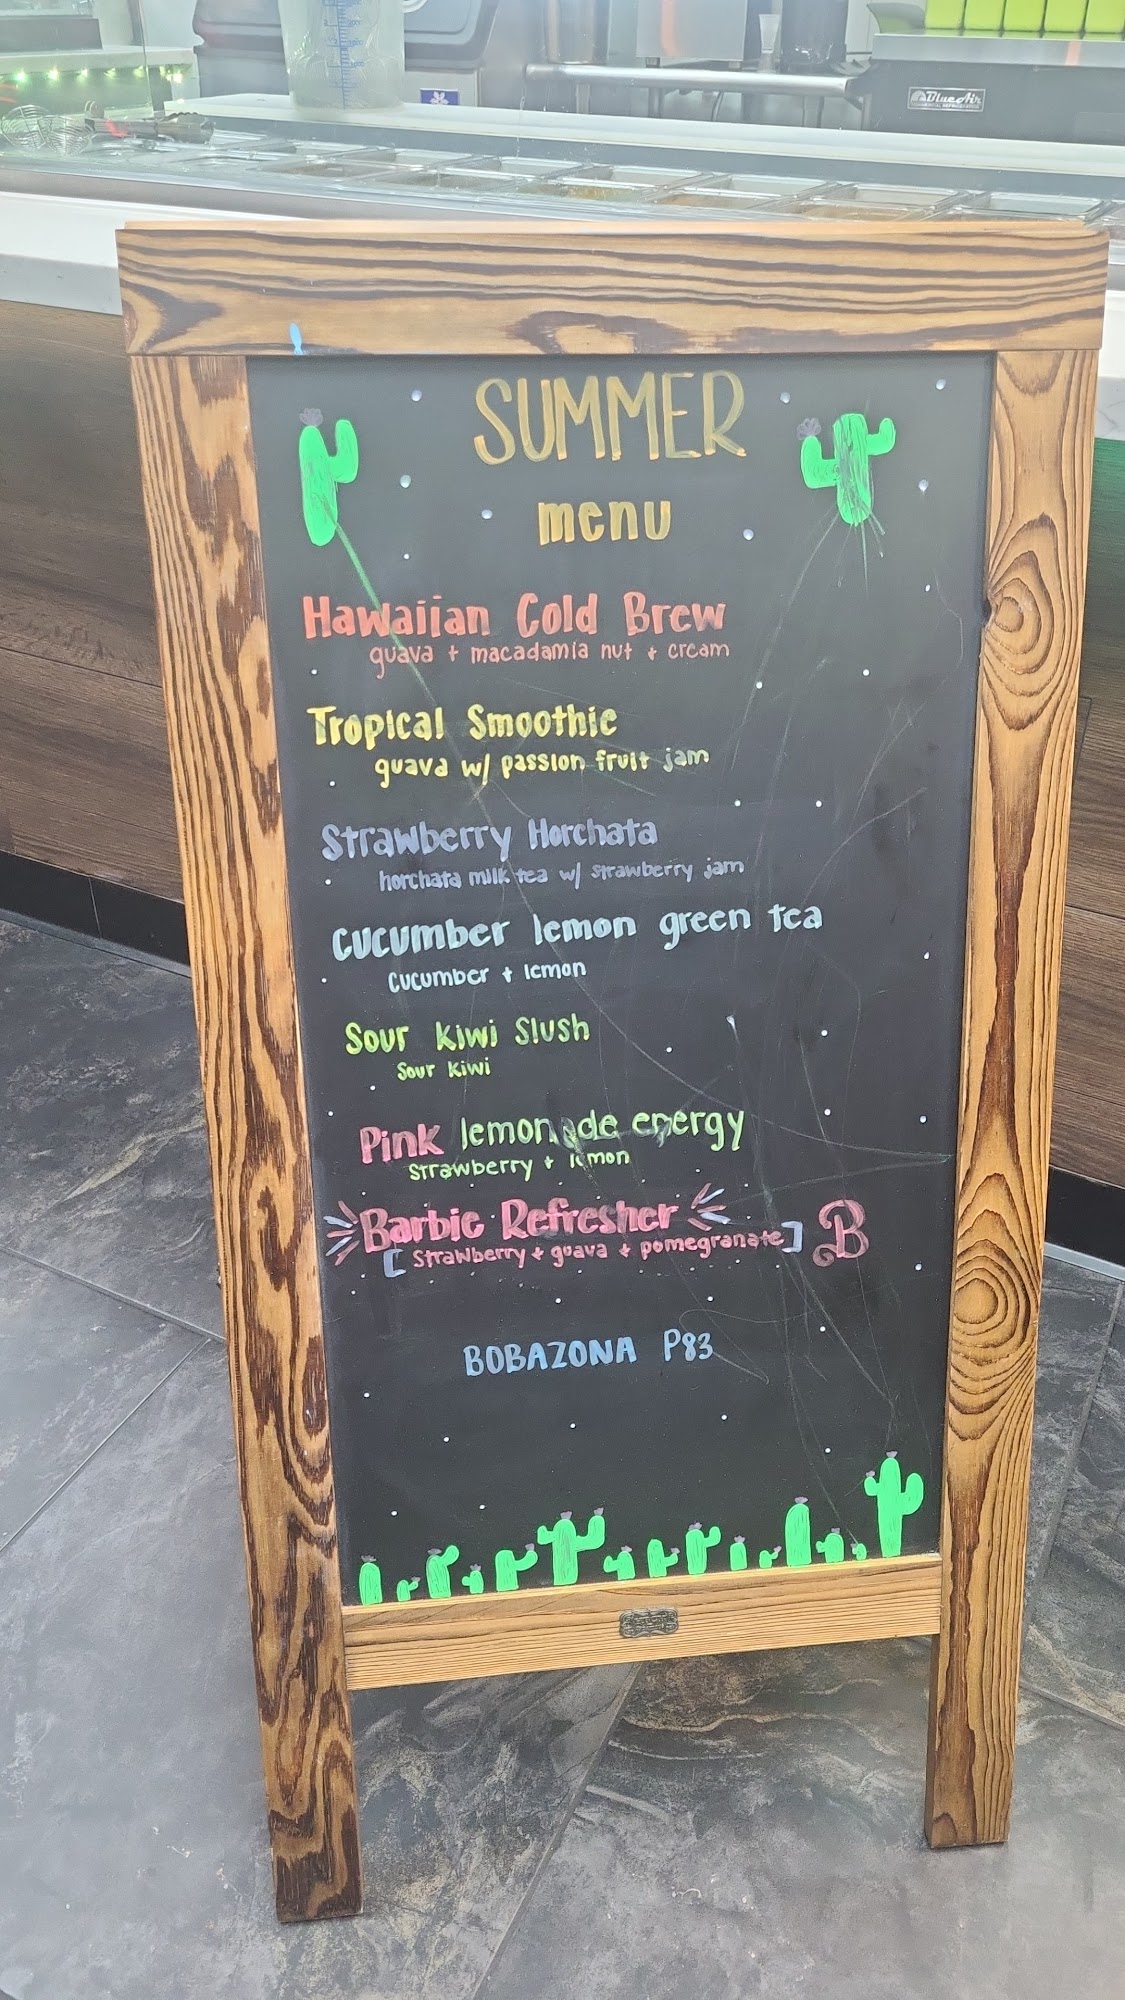 BlueAir
SUMMER
menu
Hawaiian Cold Brew
guava + macadamia nut + cream
Tropical Smoothie
guava w/ passion fruit jam
Strawberry Horchata
horchata milk tea w/ strawberry jam
Cucumber lemon green tea
Cucumber + lemon
Sour Kiwi Slush
Sour Kiwi
Pink lemonade energy
Strawberry + lemon
Barbie Refresher
[Strawberry + guava + pomegranate] B
BOBAZONA P83